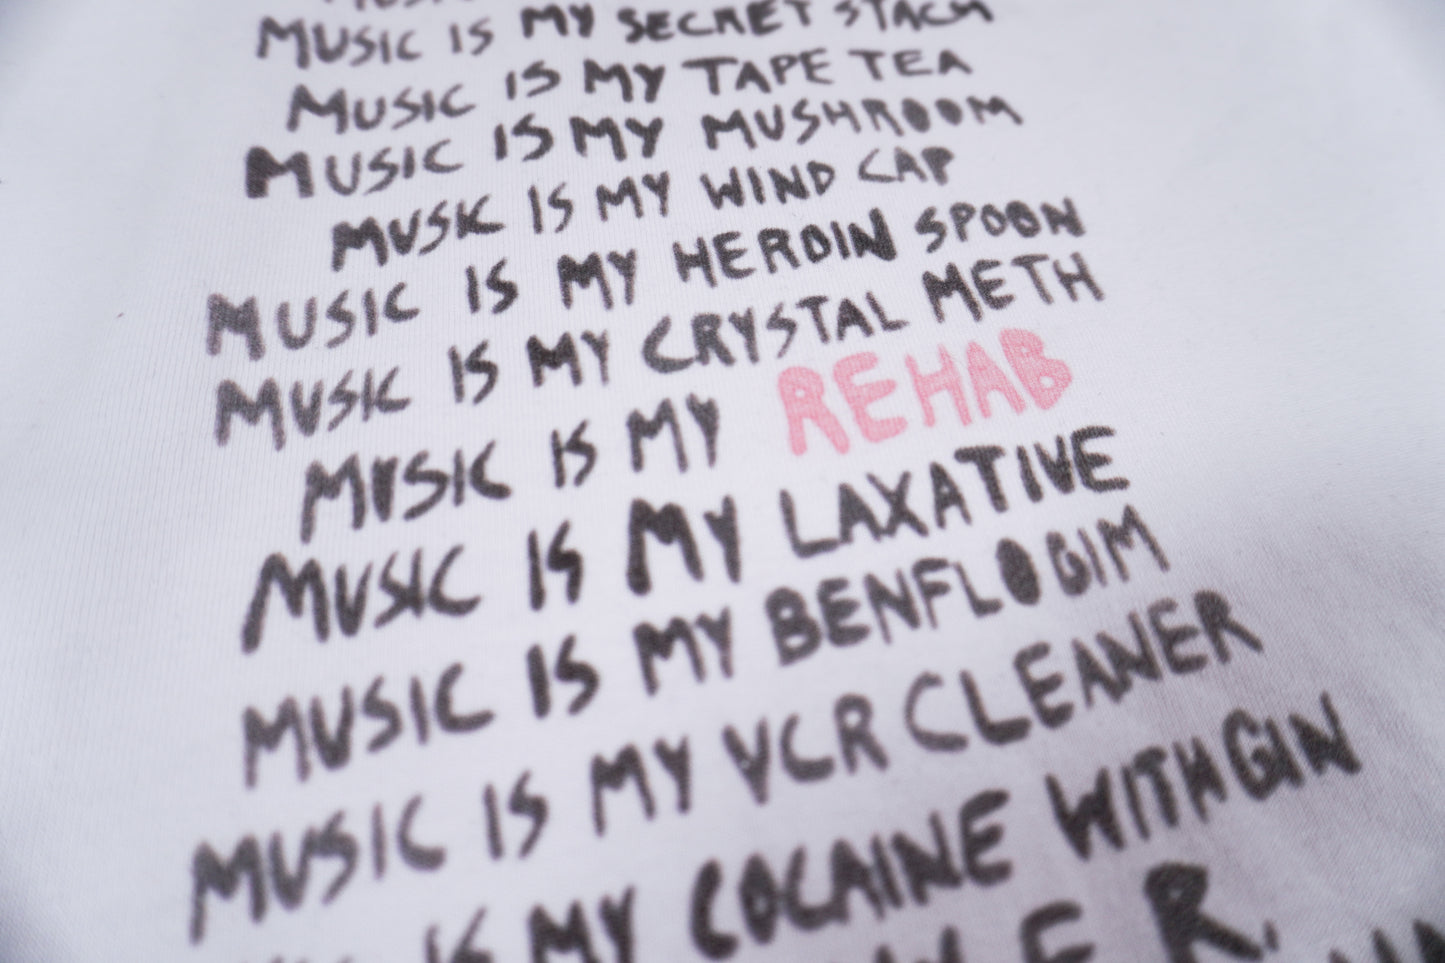 MUSIC
MUSIC IS MY SECRET STACH
MUSIC IS MY TAPE TEA
MUSIC IS MY MUSHROOM
MUSIC IS MY WIND CAP
MUSIC IS MY HEROIN SPOON
MUSIC IS MY CRYSTAL METH
MUSIC IS MY REHAB
MUSIC IS MY LAXATIVE
MUSIC IS MY BENFLOGIM
MUSIC IS MY VCR CLEANER
IS MY COCAINE WITH GIN